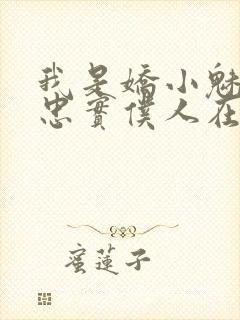 我是嬌小魅
忠實僕人在
蜜蓮子